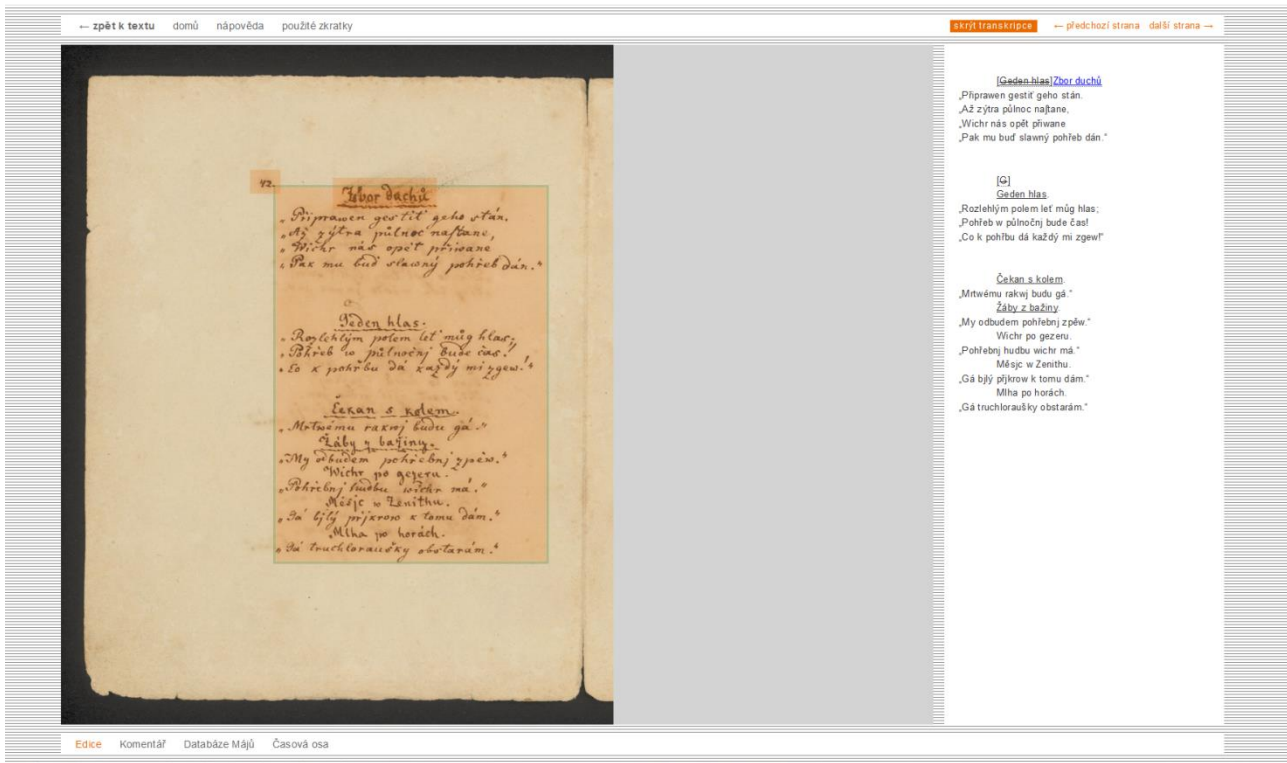 ← zpět k textu domů nápověda použité zkratky
skrýt transkripce ← předchozí strana další strana →
42.
Zbor duchů
„Připrawen gestiť geho stán.
„Až zýtra půlnoc naſtane,
„Wichr nás opět přiwane
„Pak mu buď slawný pohřeb dán.“
G
Geden hlas.
„Rozlehlým polem leť můg hlas;
„Pohřeb w půlnočnj bude čas!
„Co k pohřbu dá každý mi zgew!“
Čekan s kolem.
„Mrtwému rakwj budu gá.“
Žáby z bažiny.
„My odbudem pohřebnj zpěw.“
Wichr po gezeru.
„Pohřebnj hudbu wichr má.“
Měsjc w Zenithu.
„Gá bjlý přjkrow k tomu dám.“
Mlha po horách.
„Gá truchloraušky obstarám.“
[Geden hlas]Zbor duchů
„Připrawen gestiť geho stán.
„Až zýtra půlnoc naſtane,
„Wichr nás opět přiwane
„Pak mu buď slawný pohřeb dán.“
[G]
Geden hlas.
„Rozlehlým polem leť můg hlas;
„Pohřeb w půlnočnj bude čas!
„Co k pohřbu dá každý mi zgew!“
Čekan s kolem.
„Mrtwému rakwj budu gá.“
Žáby z bažiny.
„My odbudem pohřebnj zpěw.“
Wichr po gezeru.
„Pohřebnj hudbu wichr má.“
Měsjc w Zenithu.
„Gá bjlý přjkrow k tomu dám.“
Mlha po horách.
„Gá truchloraušky obstarám.“
Edice Komentář Databáze Májů Časová osa